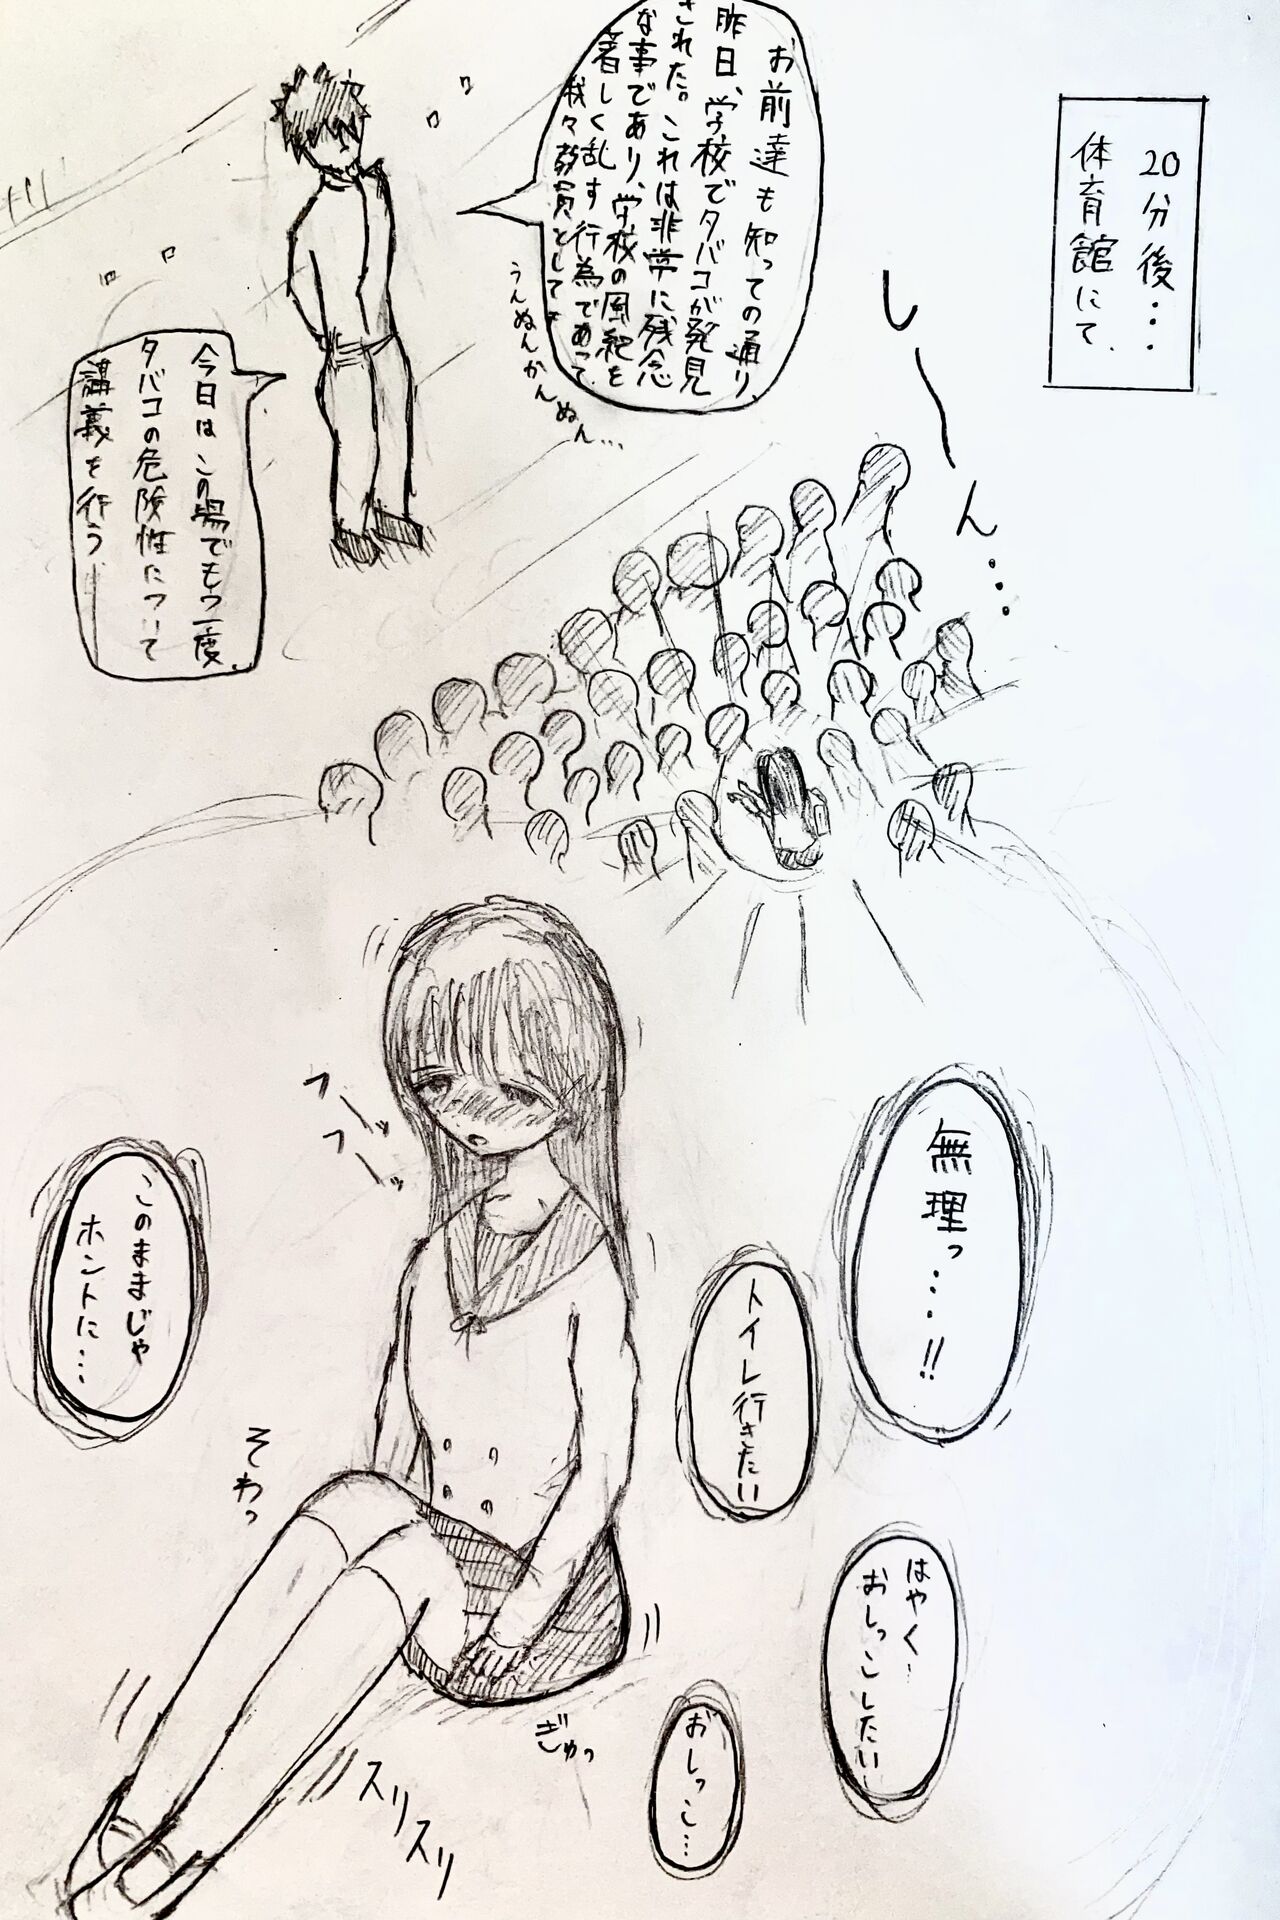 20分後・・・
体育館にて、
お前達も知っての通り、
昨日、学校でタバコが発見
された。これは非常に残念
な事であり、学校の風紀を
著しく乱す行為であって、
我々教員として
うんぬんかんぬん…
し
ー
ん
…
今日はこの場でもう一度、
タバコの危険性について
講義を行う
フーッ
フーッ
無理っ・・・!!
このままじゃ
ホントに…
トイレ行きたい
そわっ
はやく…
おしっこしたい
ぎゅっ
おしっこ…
スリスリ